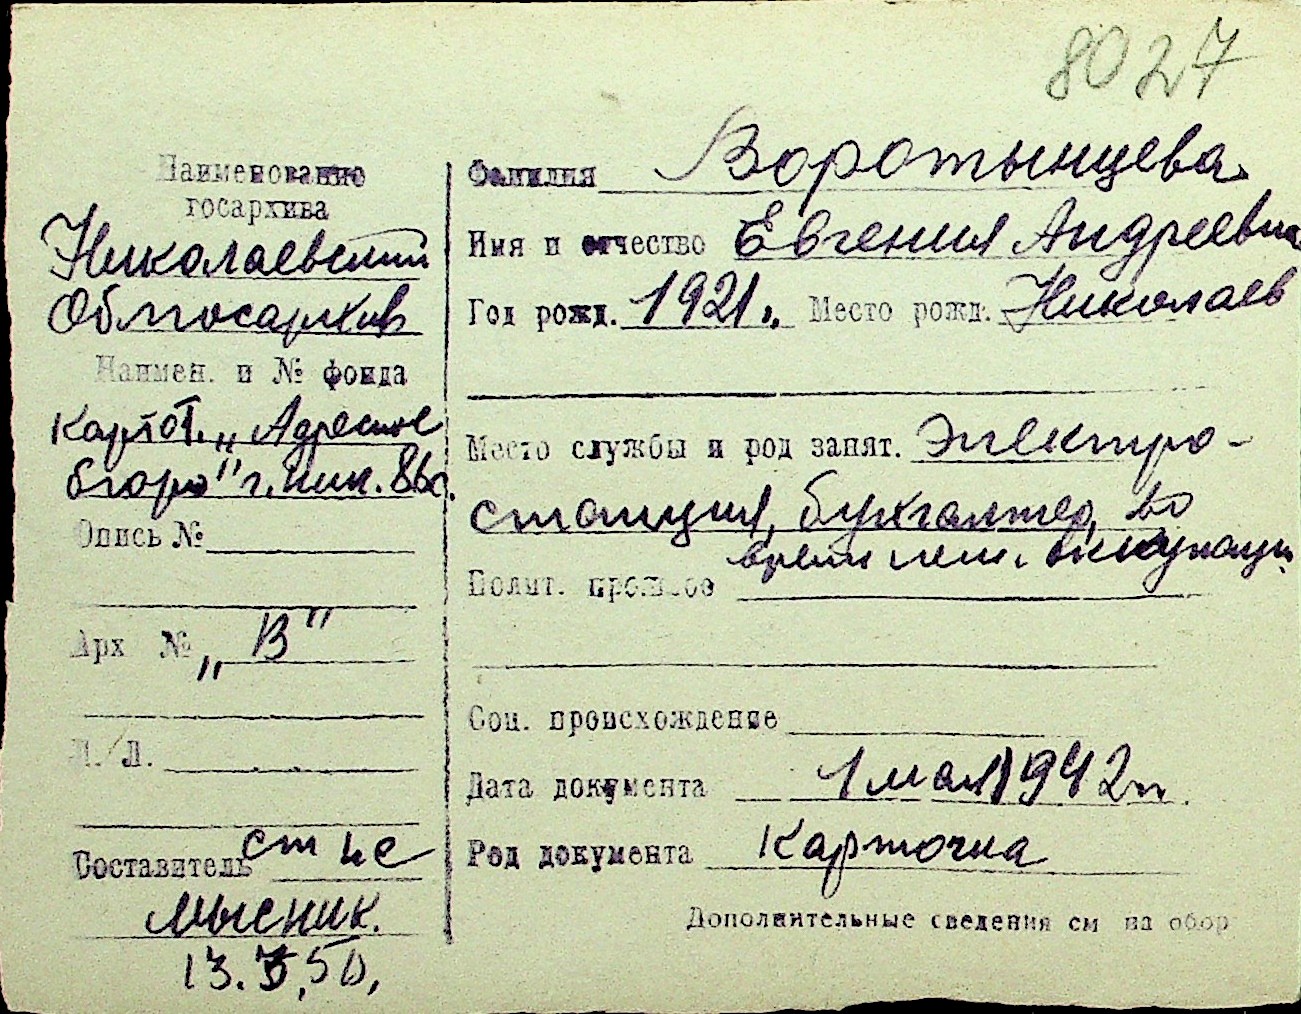 8027
Наименование
госархива
Николаевский
Облгосархив
Наимен. и № фонда
Картот. „Адресное
бюро" г. Ник.
Опись №
Арх № „В"
Л./Л.
Составитель ст не
Мысник.
Фамилия Воротынцева
Имя и отчество Евгения Андреевна
Год рожд. 1921г. Место рожд. Николаев
Место службы и род занят. Электро-
станция, бухгалтер, во
время нем. оккупации
Полит. прошлое
Соц. происхождение
Дата документа 1 мая 1942г.
Род документа Карточка
Дополнительные сведения см на обор